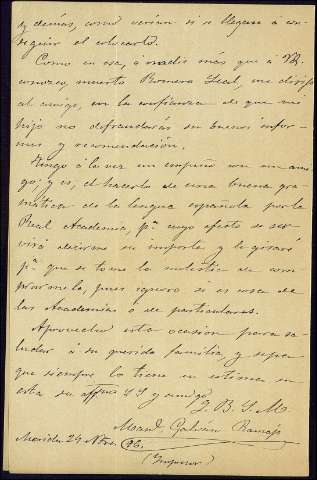 y demás, como verían si se llegase á con-
seguir el colocarlo.
Como en esa, á nadie más que á V.
conozco, muerto Romero Leal, me dirijo
al amigo, en la confianza de que mi
hijo no defraudará su buenos infor-
mes y recomendación.
Tengo á la vez un empeño con un ami-
go; y es, el hacerlo de una buena gra-
mática de la lengua española por la
Real Academia, pª. cuyo efecto se ser-
virá decirme su importe y le giraré
pª. que se tome la molestia de com-
prármela, pues ignoro si es cosa de
las Academias ó de particulares.
Aprovecho esta ocasión para sa-
ludar á su querida familia, y sepa
que siempre lo tiene en estima
esta su affmo S S y amigo
Q. B. S. M.
Galván Ramos
Mérida 24 Nbre.
(Impresor)